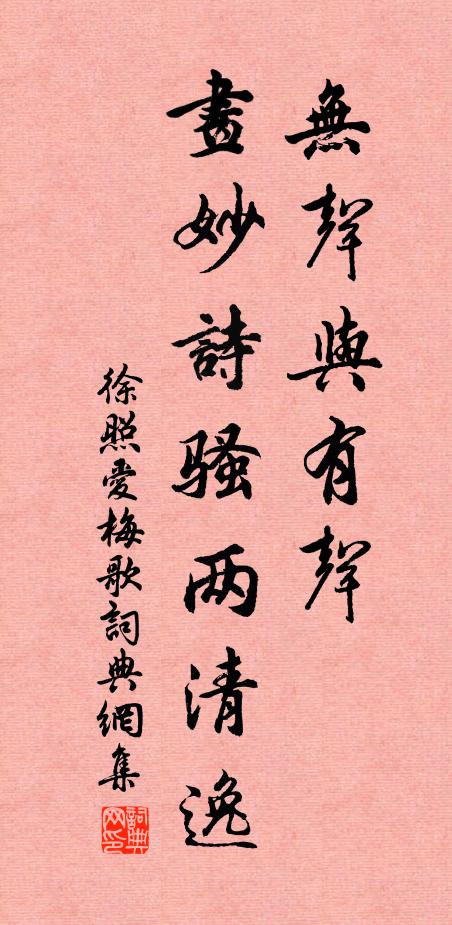 無聲與有聲
畫妙詩騷两清逸
徐照愛梅歌詞典網集
詞典网印